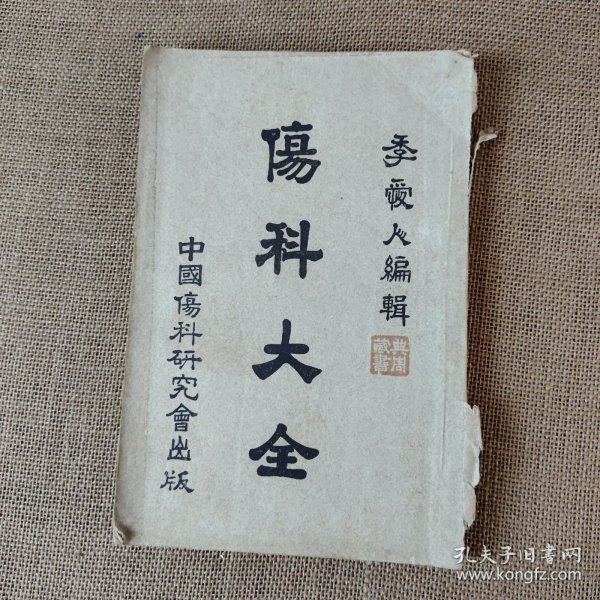 季愛人編輯
傷科大全
中國傷科研究會出版
典周
藏書
孔夫子旧書网
www.kongfz.com